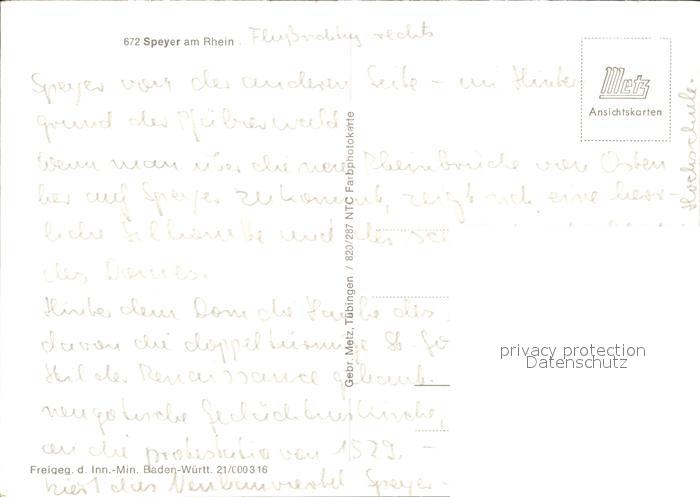 672 Speyer am Rhein . Flußrichtung rechts
Metz
Ansichtskarten
Speyer von der anderen Seite - im Hinter
grund der Pfälzerwald
Wenn man über die neue Rheinbrücke von Osten
her auf Speyer zukommt, zeigt sich eine herr-
liche Silhouette und
des Domes.
Hinter dem Dom die
davon die doppeltürmige St.
Stil der Renaissance gebaut.
neugotische Gedächtniskirche,
an die protestatio von 1529. -
das Neubauviertel Speyer-
Hochschule.
Gebr. Metz, Tübingen / 820/287 NTC Farbphotokarte
privacy protection
Datenschutz
Freigeg. d. Inn.-Min. Baden-Württ. 21/000316